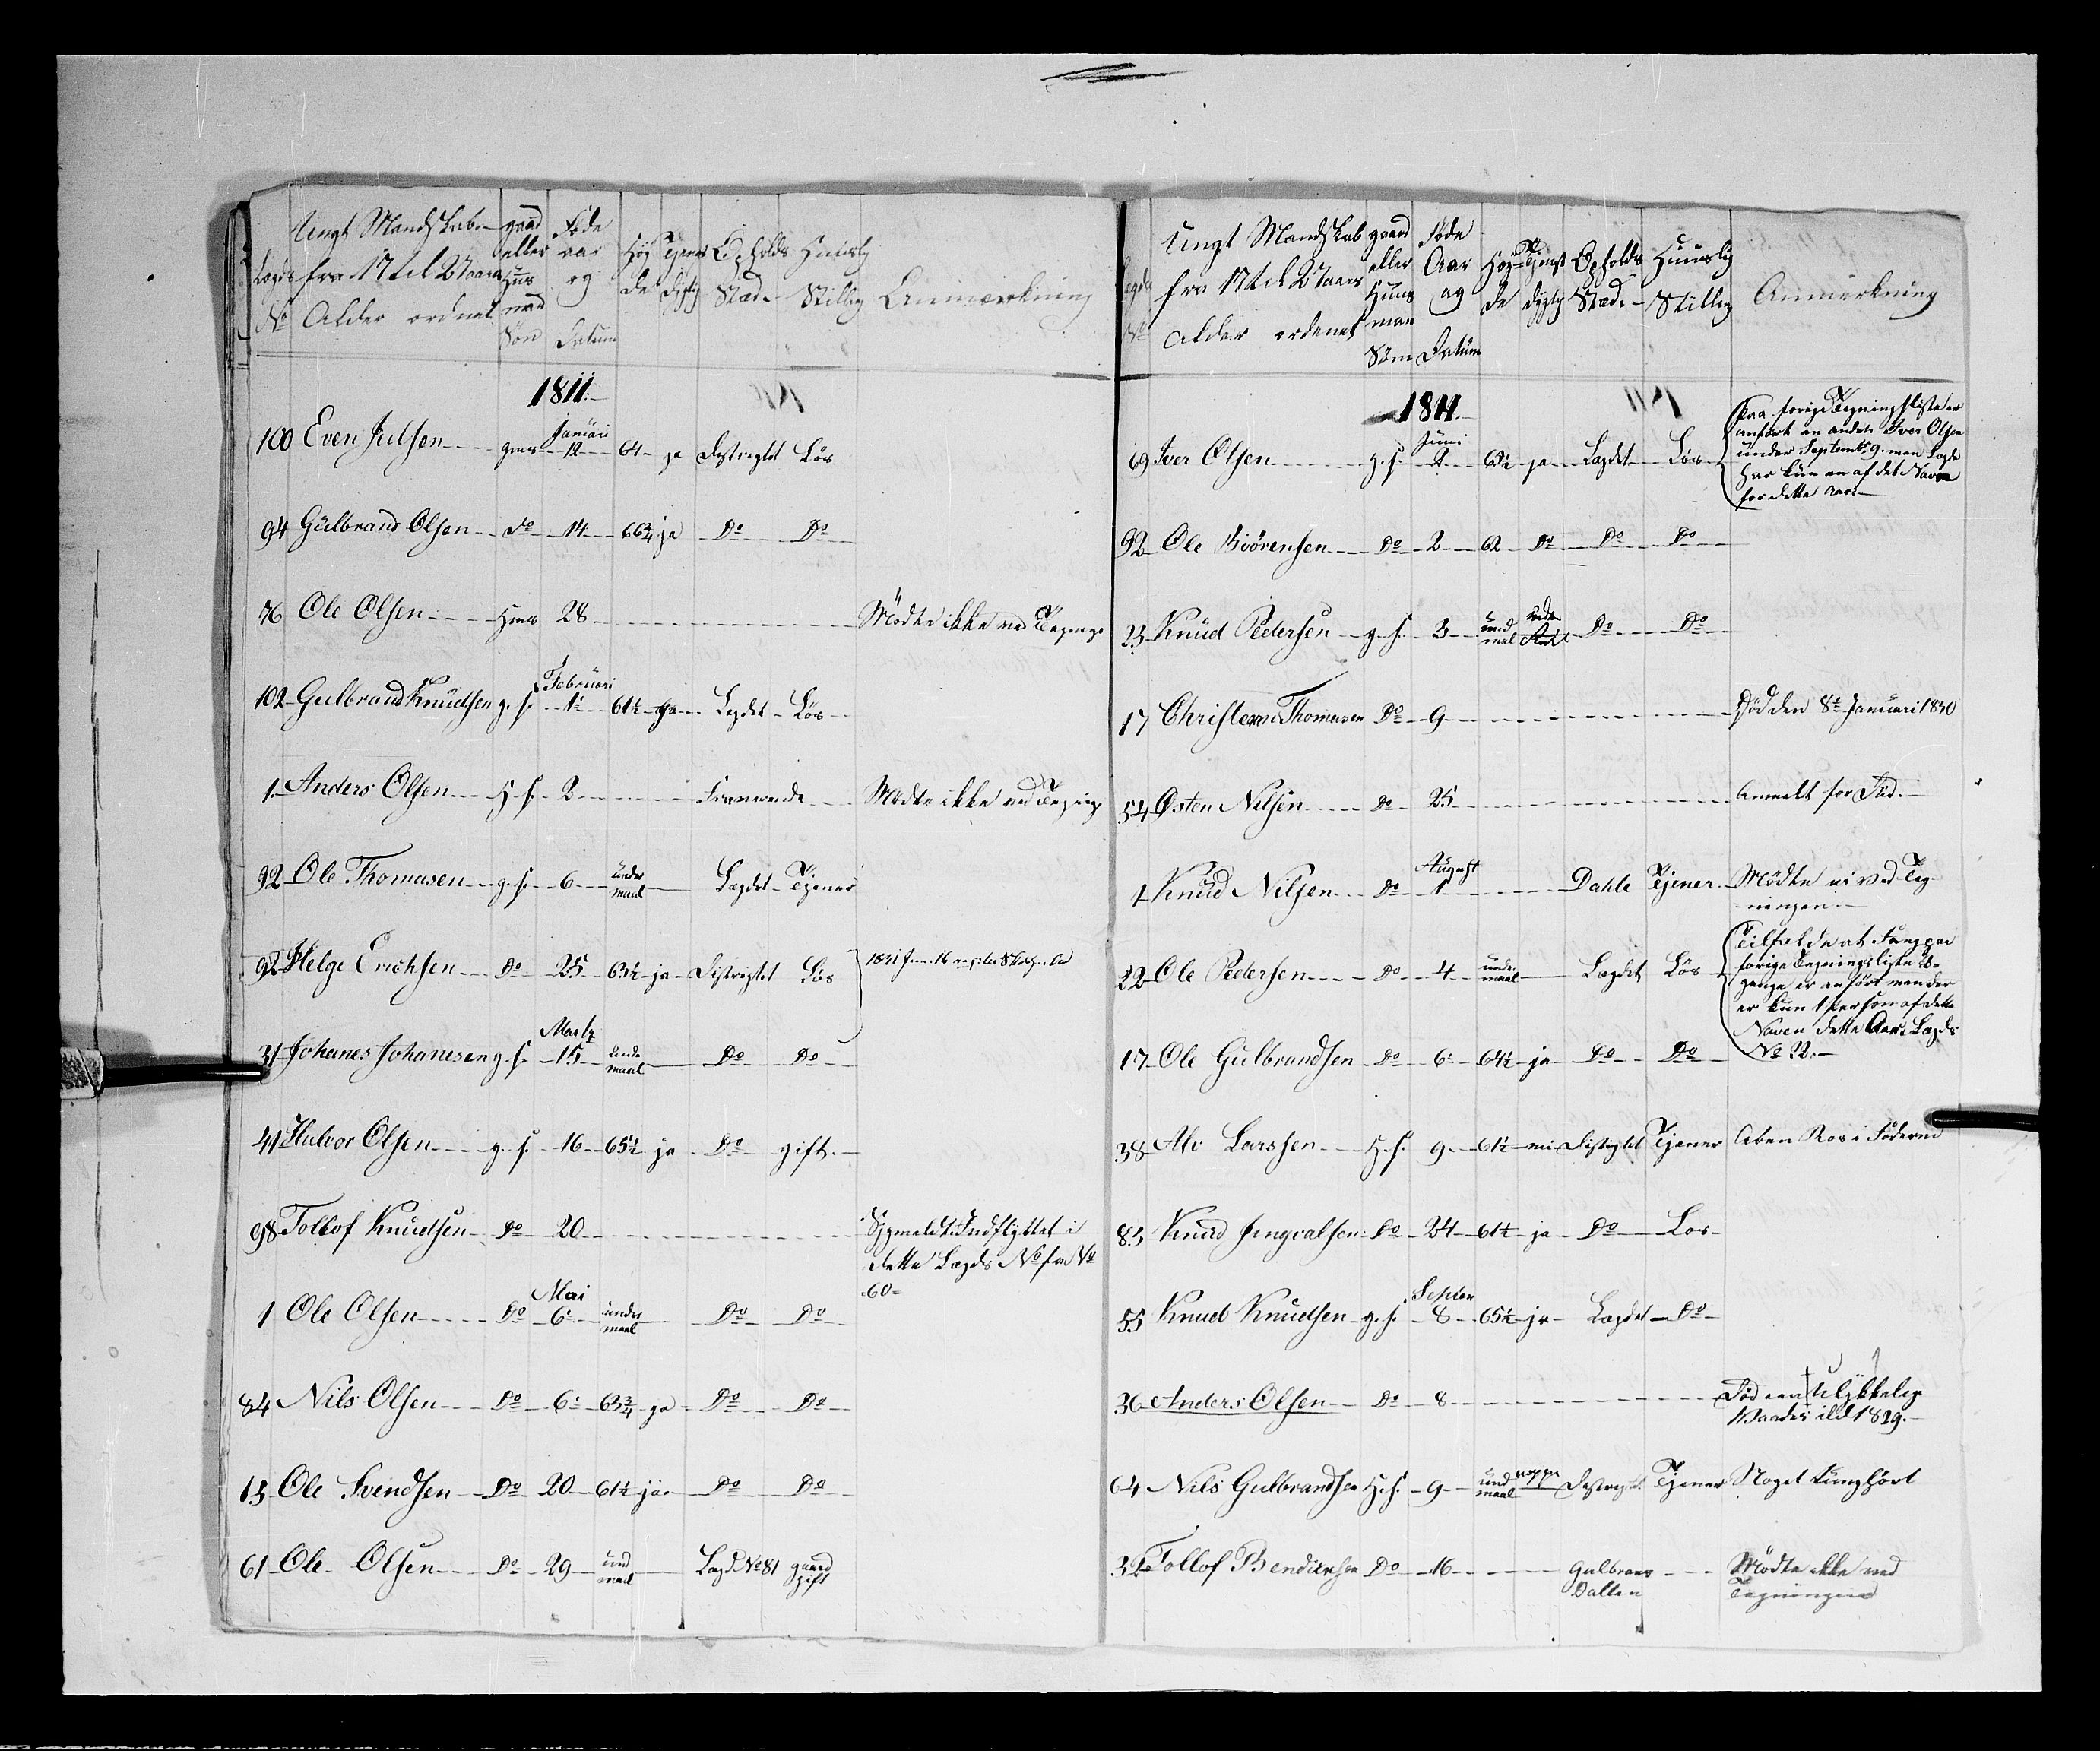 Lægds No
Ungt Mandskab fra 17 til 23 aars Alder ordnet
gaard eller Huus mand Søn
Føde aar og Datum
Høyde
Tjenst dygtig
Opholds Stæd
Huuslig Stilling
Anmærkning
1811.
Januari
100 Even Julsen gaas 12 64 ja Distrigtet Løs
94 Gulbrand Olsen do 14 66 3/4 ja Do Do
76 Ole Olsen Huus 28 Mødte ikke ved Tegninge
Februari
102 Gulbrand Knudsen g. s. 1 61½ ja Lægdet Løs
1 Anders Olsen H. s. 2 Fraværende Mødte ikke ved Tegning
92 Ole Thomasen g. s. 6 under maal Lægdet Tjener
92 Helge Erichsen Do 25 63½ ja Distrigtet Løs
Martz
31 Johanes Johanesen g. s. 15 unde maal Do Do
41 Halvor Olsen g. s. 16 65½ ja Do gift
98 Tollof Knudsen Do 20 Sygmeldt Indflyttet i
dette Lægds No fra No
60
Mai
1 Ole Olsen Do 6 under maal Do Do
84 Nils Olsen Do 6 63 3/4 ja Do Do
13 Ole Svendsen Do 20 61½ ja Do Do
61 Ole Olsen Do 29 und maal Lægd No 81 gaard gift
Lægds No
Ungt Mandskab fra 17 til 23 aars alder ordenet
gaard eller Huus man Søn
Føde Aar og Datum
Høyde
Tjenst dygtig
Opholds Stæd
Huuslig Stilling
Anmerkning
1811.
Juni
69 Iver Olsen g. s. 2 63½ ja Lægdet Løs
Paa forige Tegningsliste er
anført en anden Iver Olsen
under Septemb. 9. men Lægde
har kun en af det Navn
for dette aar
92 Ole Biörensen Do 2 62 Do Do Do
23 Knud Pedersen g. s. 3 und maal Do Do
17 Christen Thomasen Do 9 Død den 8de Januari 1830
54 Østen Nilsen do 25 Anmelt for Død.
August
1 Knud Nilsen Do 1 Dahle Tjener Mødte ei ved Teg-
ningen
22 Ole Pedersen Do 4 unde maal Lægdet Løs
forige Tegningsliste
gange er anført men der
er kun 1 person af dette
Naven dette Aar Lægds
No 22.
17 Ole Gulbrandsen Do 6 64½ ja Do Do
38 Alv Larssen H. s. 9 61½ nei Distrigtet Tjener Aben Ros i Føderne
83 Knud Jngvalsen Do 24 61½ ja Do Løs
Septem
55 Knud Knudsen g. s. 8 65½ ja Lægdet Do
36 Anders Olsen Do 8 Død ved Ulykkelig
Vaades ild 1829.
64 Nils Gulbrandsen H. s. 9 und maal Distrigt. Tjener Noget tunghørt
32 Tollof Bendicksen Do 16 Gulbrans Dallen Mødte ikke ved
Tegningen